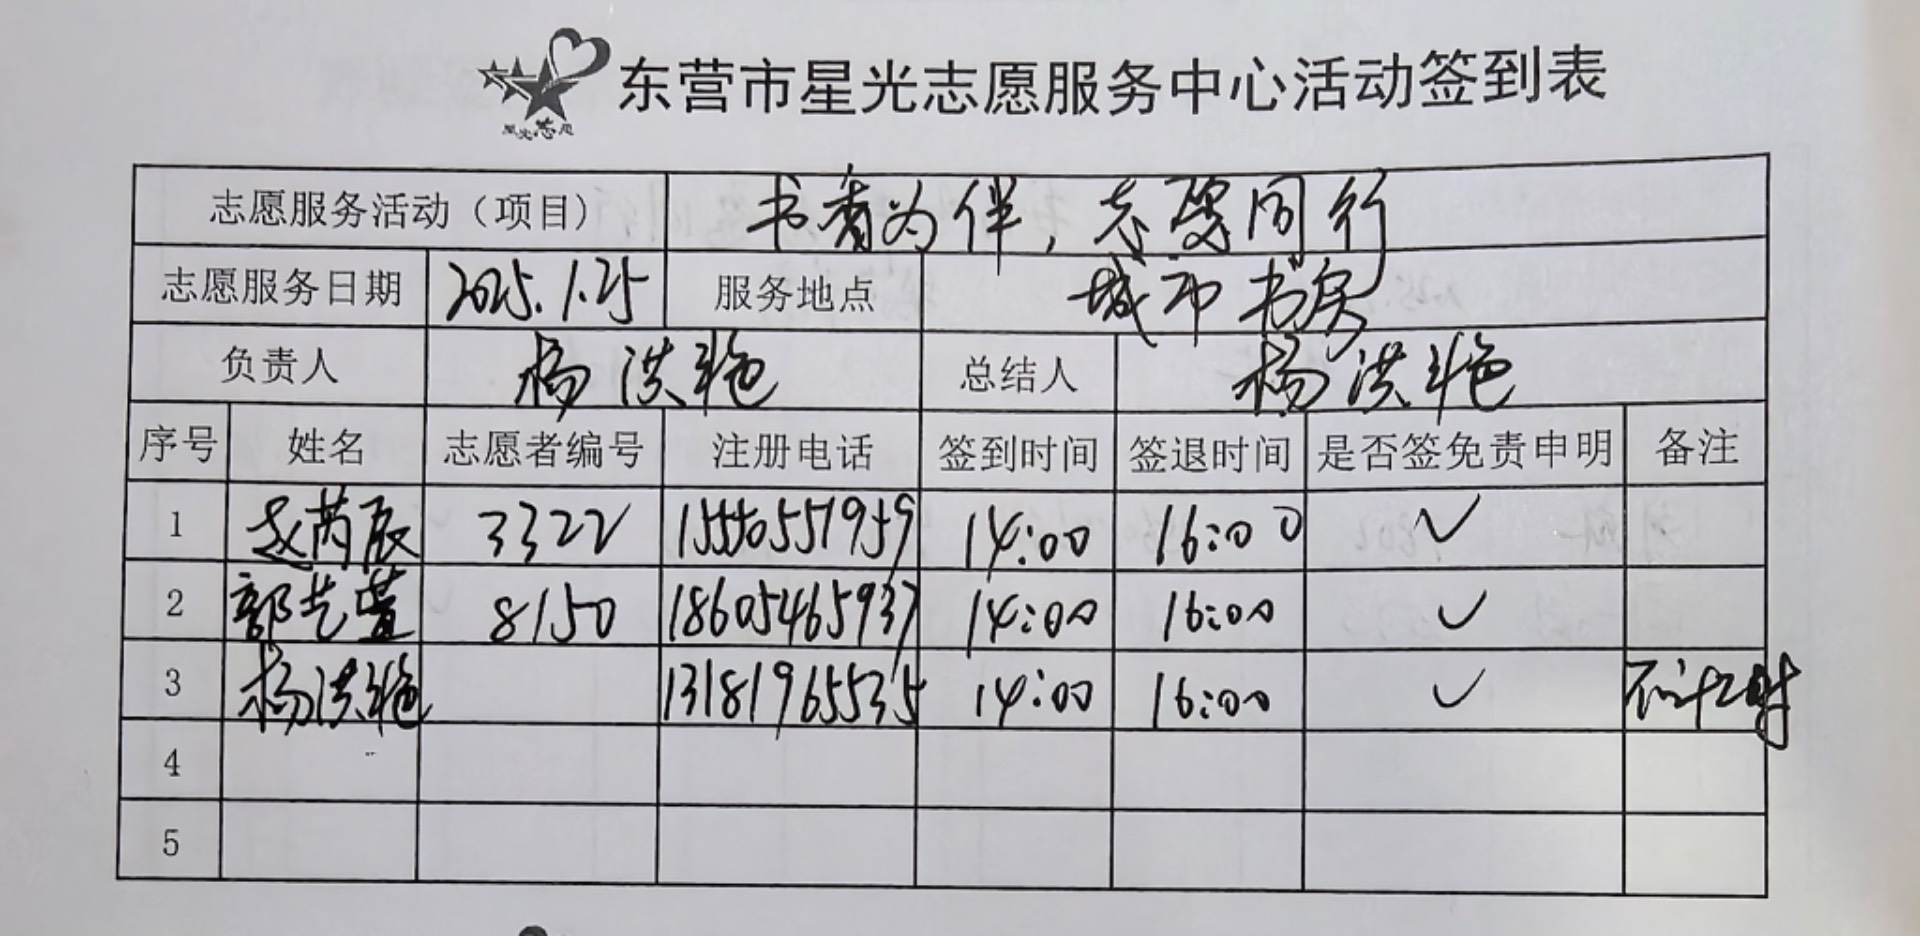 星光志愿
东营市星光志愿服务中心活动签到表
志愿服务活动（项目） 书香为伴，志愿同行
志愿服务日期 2025.1.25 服务地点 城市书房
负责人 杨洪艳 总结人 杨洪艳
序号 姓名 志愿者编号 注册电话 签到时间 签退时间 是否签免责申明 备注
1 赵芮辰 3322 15550557959 14:00 16:00 ✓
2 郭艺萱 8150 18605465937 14:00 16:00 ✓
3 杨洪艳 13181965535 14:00 16:00 ✓ 不计工时
4
5